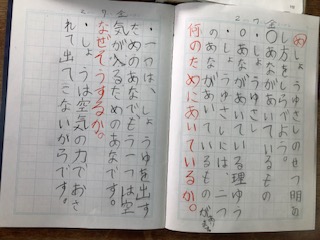 め しょうゆさしのせつ明の
し方をしらべよう。
2 7 金
〇あながあいているもの
・しょうゆさし
〇あながあいている理ゆう
・しょうゆさしには二つ
のあながあいているものが
何のためにあいているか。
2 7 金
・一つは、しょうゆを出す
ためのあなでもう一つは空
気が入るためのあなです。
なぜそうするか。
・しょうは空気の力でおさ
れて出てこないからです。